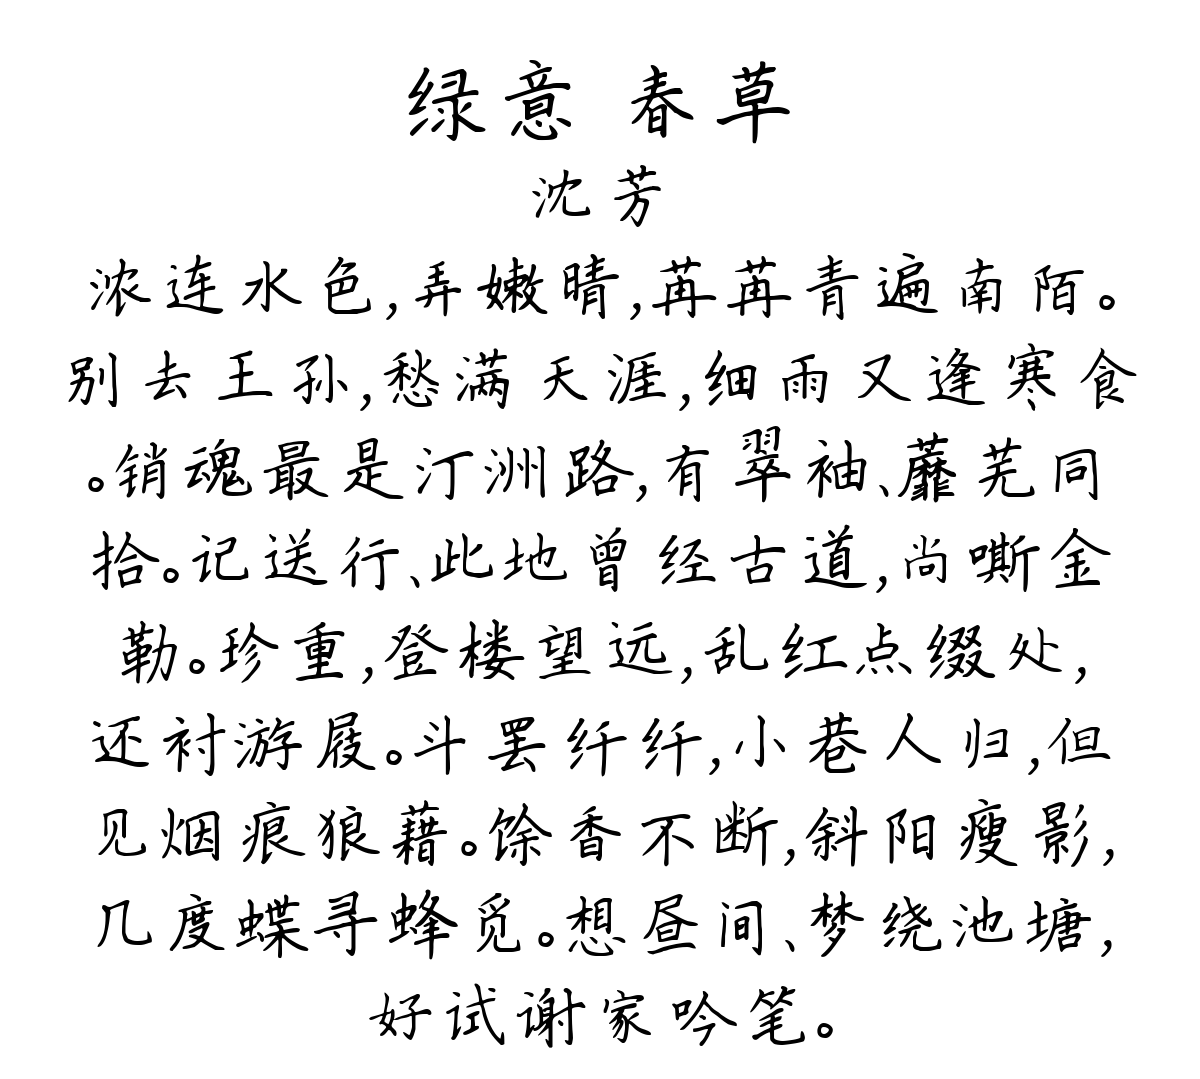 绿意 春草
沈芳
浓连水色,弄嫩晴,苒苒青遍南陌。
别去王孙,愁满天涯,细雨又逢寒食
。销魂最是汀洲路,有翠袖、蘼芜同
拾。记送行、此地曾经古道,尚嘶金
勒。珍重,登楼望远,乱红点缀处,
还衬游屐。斗罢纤纤,小巷人归,但
见烟痕狼藉。馀香不断,斜阳瘦影,
几度蝶寻蜂觅。想昼间、梦绕池塘,
好试谢家吟笔。